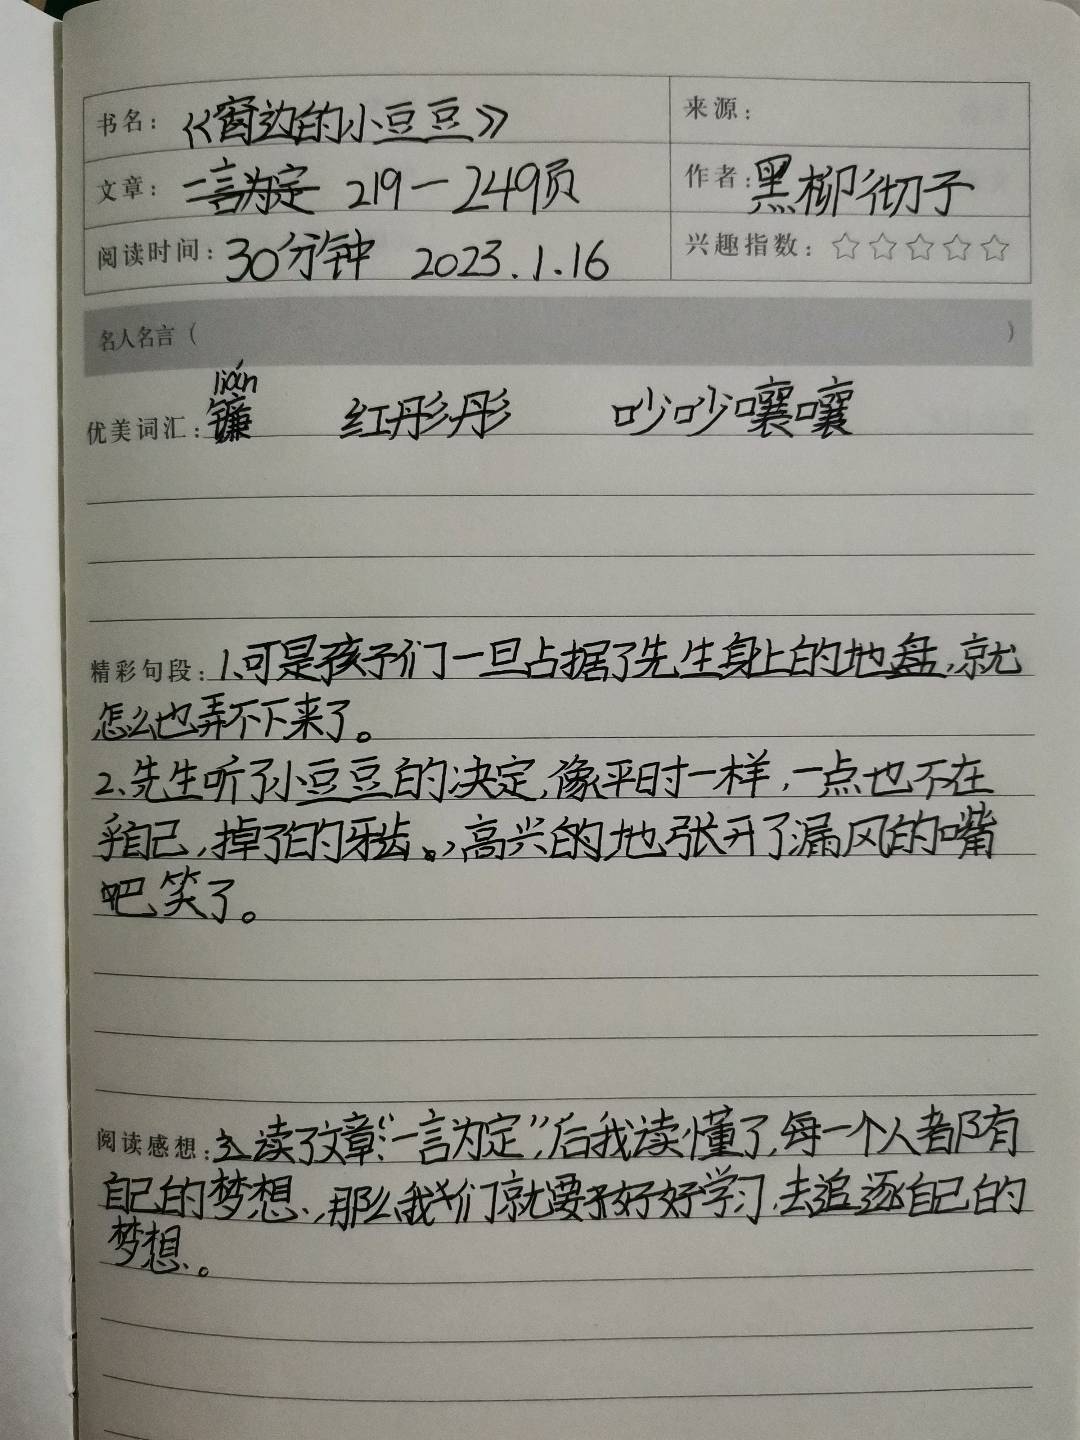 书名：《窗边的小豆豆》
来源：
文章：一言为定 219—249页
作者：黑柳彻子
阅读时间：30分钟 2023.1.16
兴趣指数：☆☆☆☆☆
名人名言（ ）
lián
优美词汇：镰 红彤彤 吵吵嚷嚷
精彩句段：1、可是孩子们一旦占据了先生身上的地盘，就
怎么也弄不下来了。
2、先生听了小豆豆的决定，像平时一样，一点也不在
乎自己，掉了的牙齿。，高兴的地张开了漏风的嘴
吧笑了。
阅读感想：读了文章“一言为定”，后我读懂了，每一个人者都有
自己的梦想.，那么我们就要好好学习，去追逐自己的
梦想.。